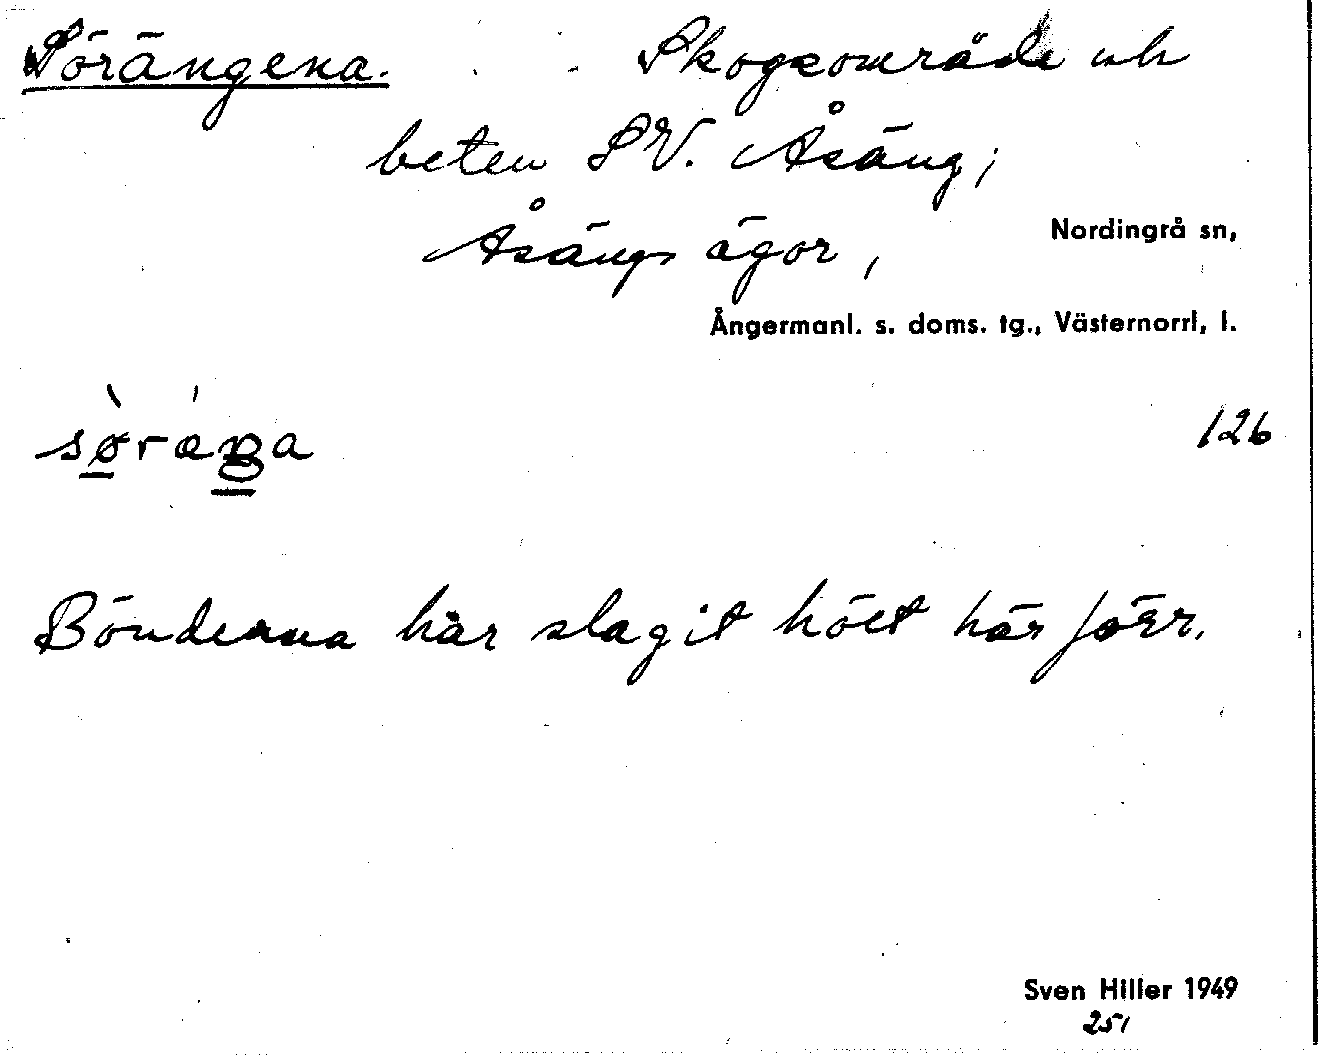 Sörängena. Skogsområde och
beten SV. Åsäng;
Åsängs ägor,
Nordingrå sn,
Ångermanl. s. doms. tg., Västernorrl. l.
126
Bönderna har slagit höet här förr.
Sven Hiller 1949
251